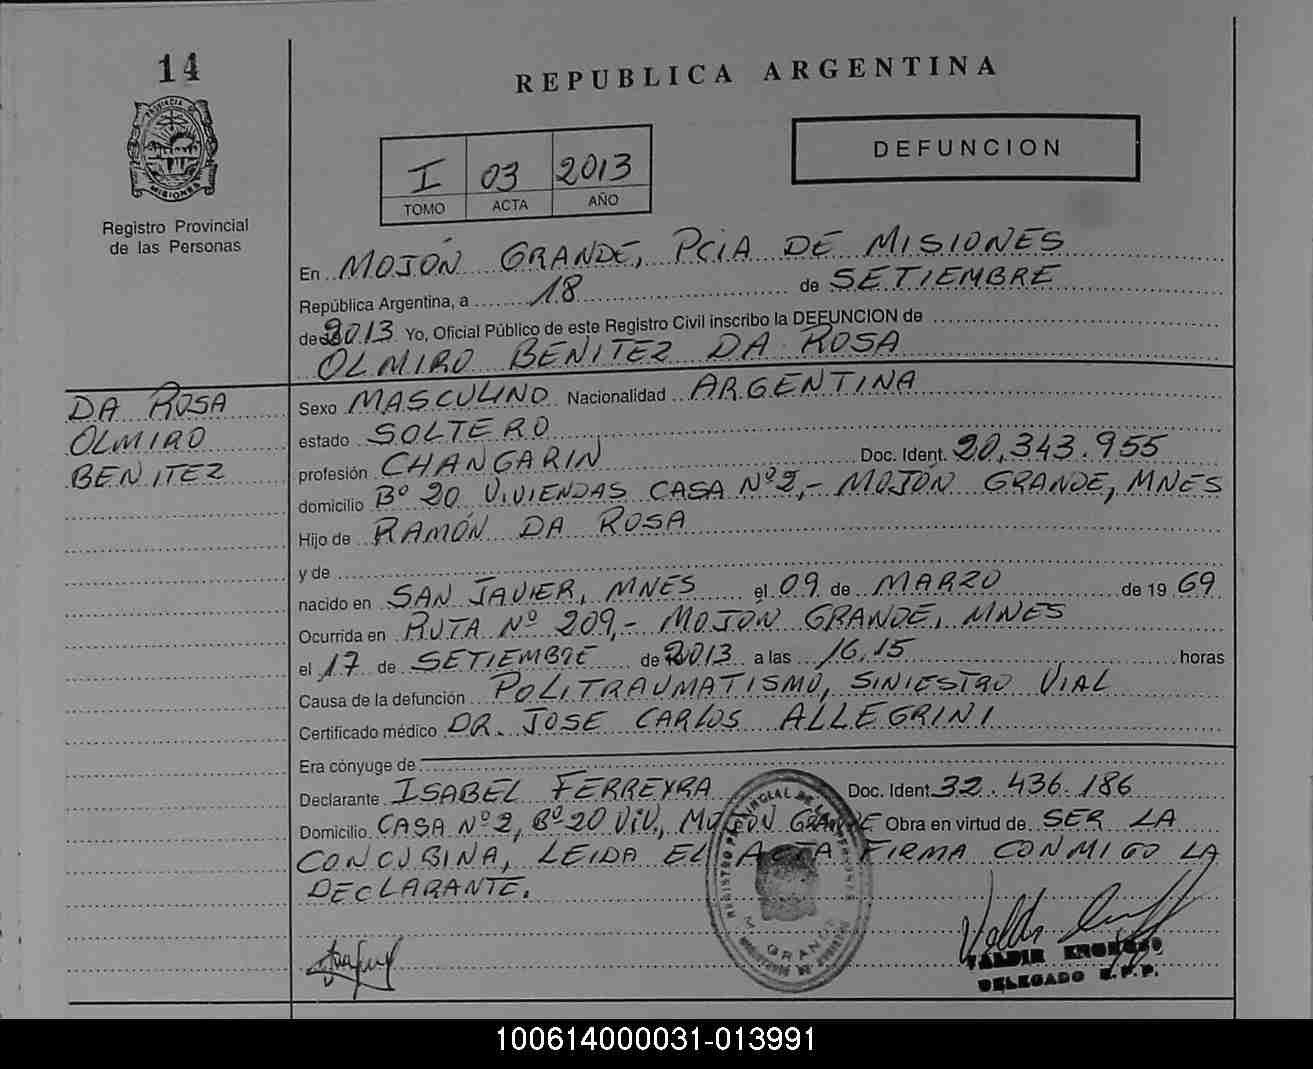 14
REPUBLICA ARGENTINA
PROVINCIA DE
MISIONES
Registro Provincial
de las Personas
I 03 2013
TOMO ACTA AÑO
DEFUNCION
En MOJÓN GRANDE, PCIA DE MISIONES
República Argentina, a 18 de SETIEMBRE
de 2013 Yo, Oficial Público de este Registro Civil inscribo la DEFUNCION de
OLMIRO BENITEZ DA ROSA
DA ROSA
OLMIRO
BENITEZ
Sexo MASCULINO Nacionalidad ARGENTINA
estado SOLTERO
profesión CHANGARIN Doc. Ident. 20.343.955
domicilio Bº 20 VIVIENDAS CASA Nº 2,- MOJÓN GRANDE, MNES
Hijo de RAMÓN DA ROSA
y de
nacido en SAN JAVIER, MNES el 09 de MARZO de 1969
Ocurrida en RUTA Nº 209,- MOJÓN GRANDE, MNES
el 17 de SETIEMBRE de 2013 a las 16,15 horas
Causa de la defunción POLITRAUMATISMO, SINIESTRO VIAL
Certificado médico DR. JOSE CARLOS ALLEGRINI
Era cónyuge de
Declarante ISABEL FERREYRA Doc. Ident. 32.436.186
Domicilio CASA Nº 2, Bº 20 VIV., MOJÓN GRANDE Obra en virtud de SER LA
CONCUBINA, LEIDA EL ACTA FIRMA CONMIGO LA
DECLARANTE.
REGISTRO PROVINCIAL DE LAS PERSONAS
M. GRANDE
VALDIR
DELEGADO R.P.P.
100614000031-013991